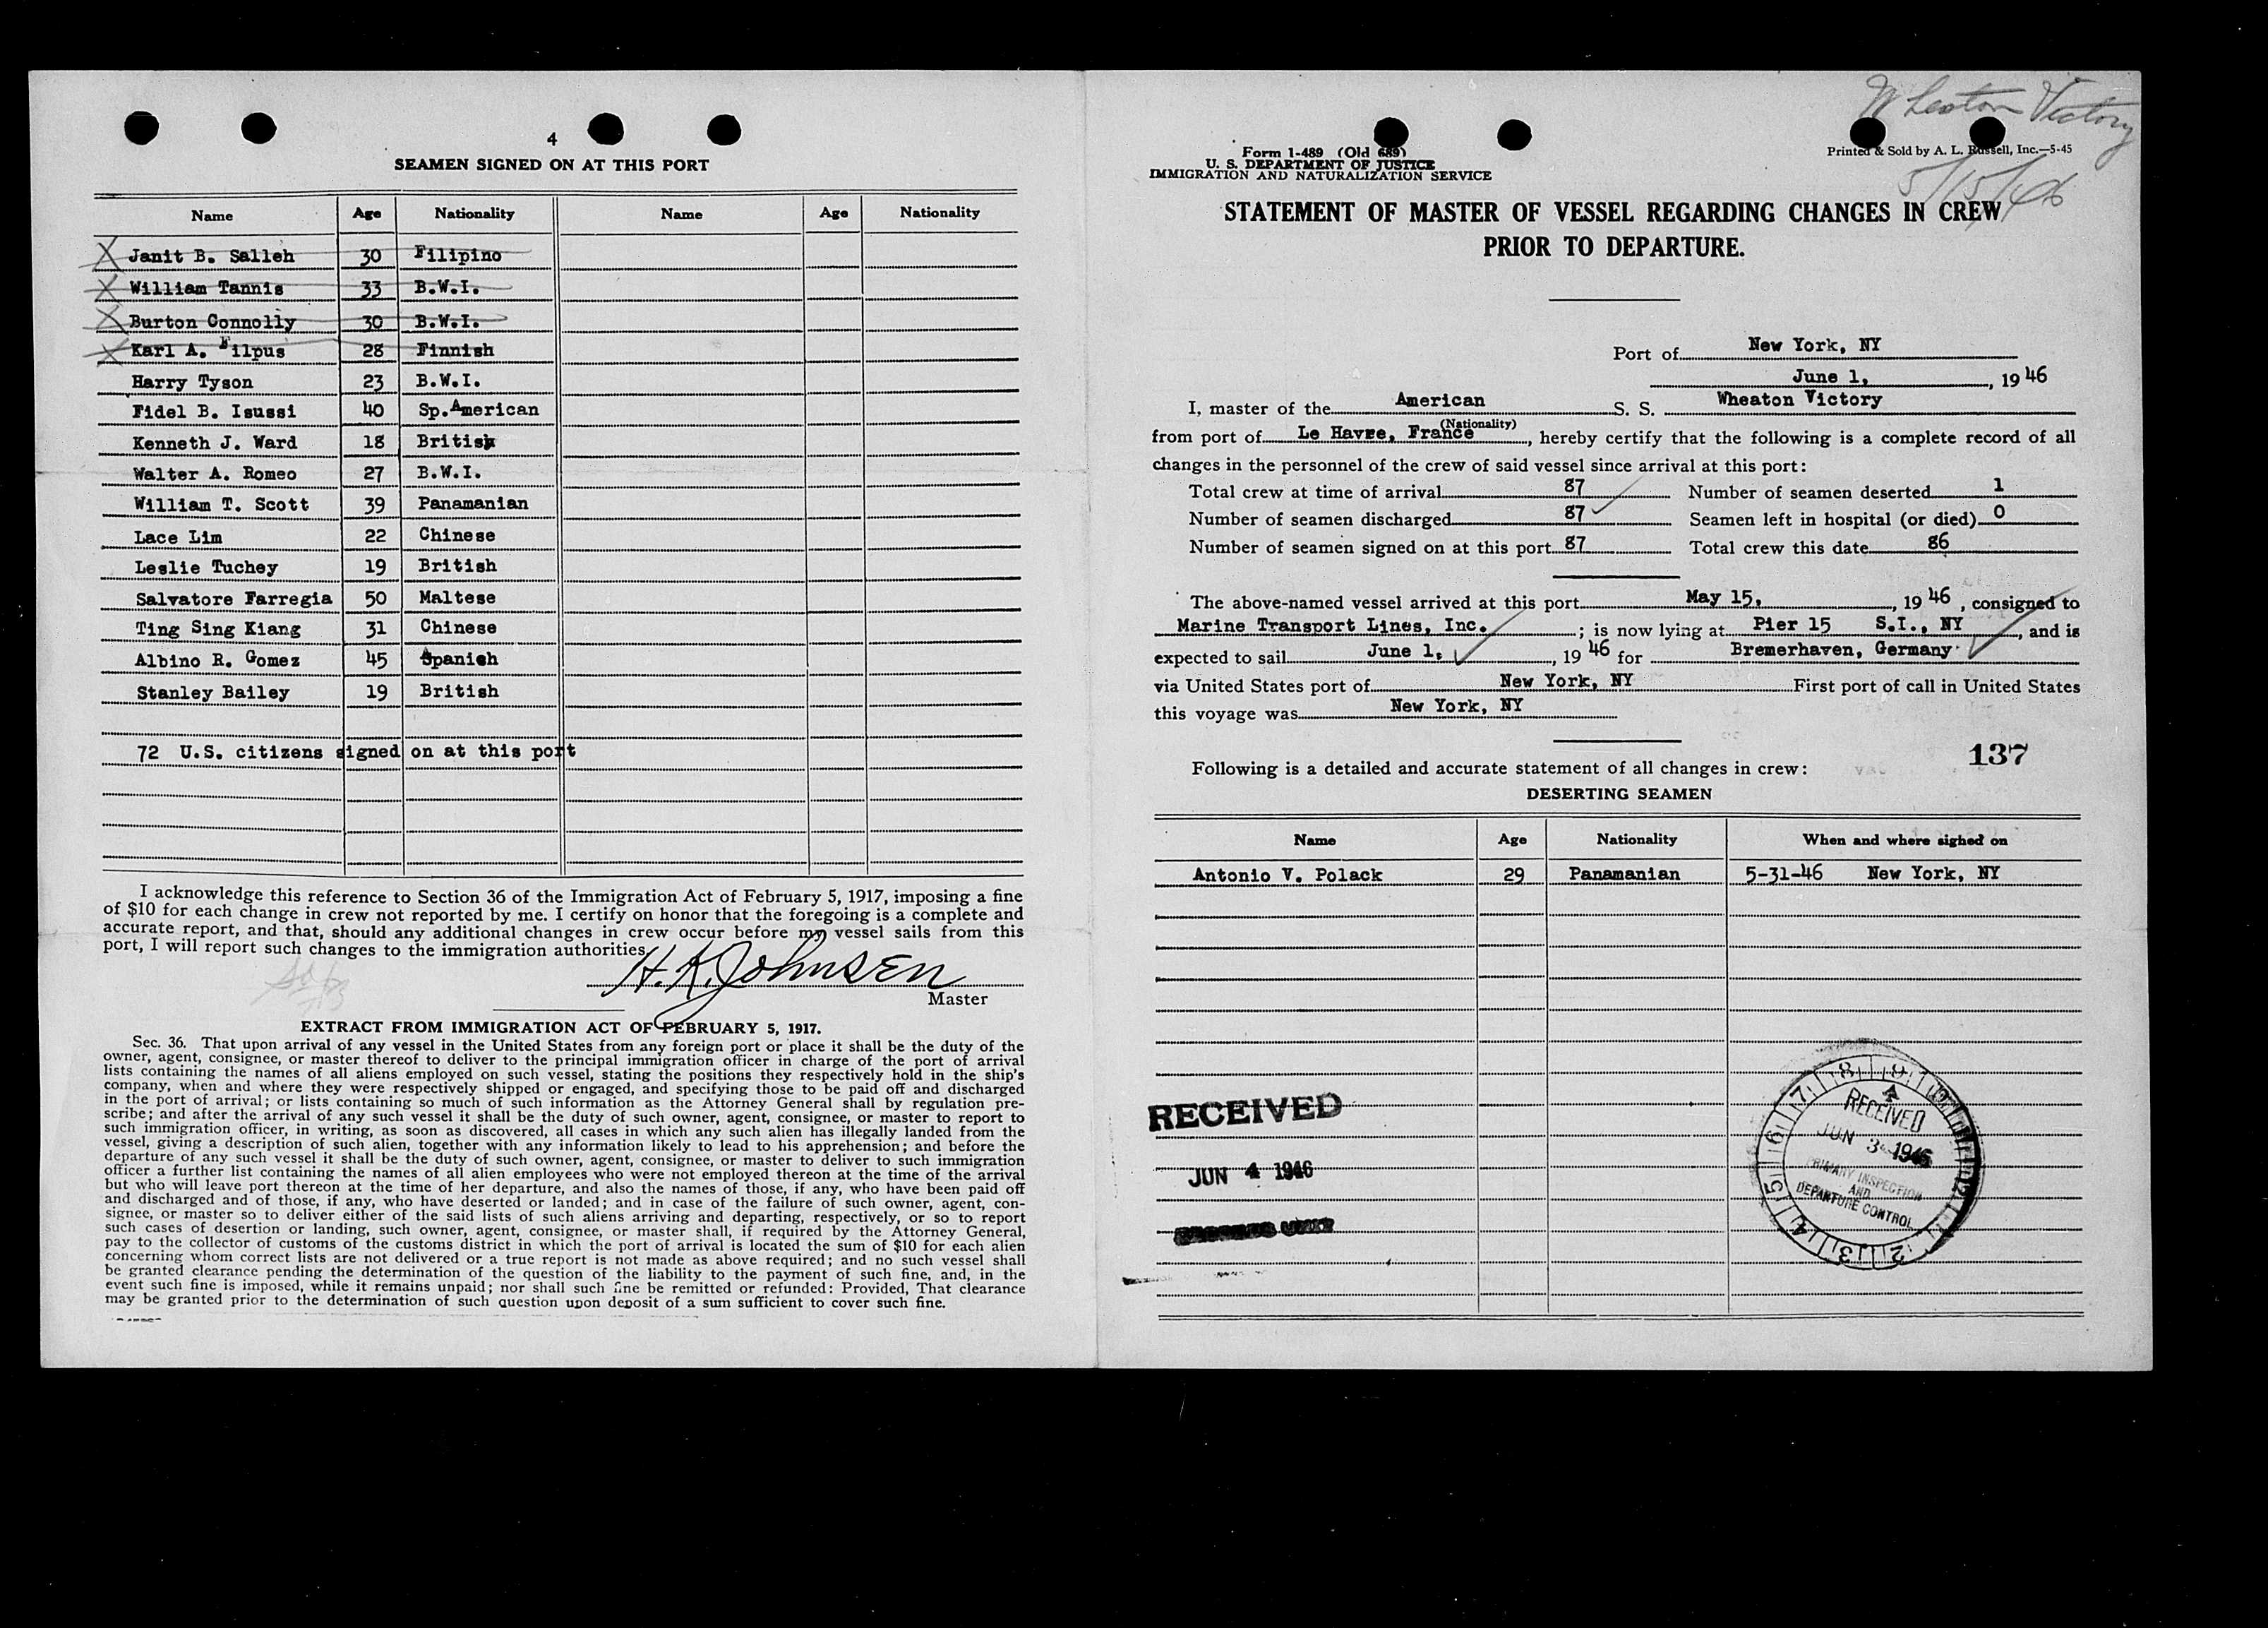 4
SEAMEN SIGNED ON AT THIS PORT
Name Age Nationality Name Age Nationality
X Janit B. Salleh 30 Filipino
X William Tannis 33 B.W.I.
X Burton Connolly 30 B.W.I.
X Karl A. Filpus 28 Finnish
Harry Tyson 23 B.W.I.
Fidel B. Isussi 40 Sp.American
Kenneth J. Ward 18 British
Walter A. Romeo 27 B.W.I.
William T. Scott 39 Panamanian
Lace Lim 22 Chinese
Leslie Tuchey 19 British
Salvatore Farregia 50 Maltese
Ting Sing Kiang 31 Chinese
Albino R. Gomez 45 Spanish
Stanley Bailey 19 British
72 U.S. citizens signed on at this port
I acknowledge this reference to Section 36 of the Immigration Act of February 5, 1917, imposing a fine
of $10 for each change in crew not reported by me. I certify on honor that the foregoing is a complete and
accurate report, and that, should any additional changes in crew occur before my vessel sails from this
port, I will report such changes to the immigration authorities
H. K. Johnsen
Master
EXTRACT FROM IMMIGRATION ACT OF FEBRUARY 5, 1917.
Sec. 36. That upon arrival of any vessel in the United States from any foreign port or place it shall be the duty of the
owner, agent, consignee, or master thereof to deliver to the principal immigration officer in charge of the port of arrival
lists containing the names of all aliens employed on such vessel, stating the positions they respectively hold in the ship's
company, when and where they were respectively shipped or engaged, and specifying those to be paid off and discharged
in the port of arrival; or lists containing so much of such information as the Attorney General shall by regulation pre-
scribe; and after the arrival of any such vessel it shall be the duty of such owner, agent, consignee, or master to report to
such immigration officer, in writing, as soon as discovered, all cases in which any such alien has illegally landed from the
vessel, giving a description of such alien, together with any information likely to lead to his apprehension; and before the
departure of any such vessel it shall be the duty of such owner, agent, consignee, or master to deliver to such immigration
officer a further list containing the names of all alien employees who were not employed thereon at the time of the arrival
but who will leave port thereon at the time of her departure, and also the names of those, if any, who have been paid off
and discharged and of those, if any, who have deserted or landed; and in case of the failure of such owner, agent, con-
signee, or master so to deliver either of the said lists of such aliens arriving and departing, respectively, or so to report
such cases of desertion or landing, such owner, agent, consignee, or master shall, if required by the Attorney General,
pay to the collector of customs of the customs district in which the port of arrival is located the sum of $10 for each alien
concerning whom correct lists are not delivered or a true report is not made as above required; and no such vessel shall
be granted clearance pending the determination of the question of the liability to the payment of such fine, and, in the
event such fine is imposed, while it remains unpaid; nor shall such fine be remitted or refunded: Provided, That clearance
may be granted prior to the determination of such question upon deposit of a sum sufficient to cover such fine.
Wheaton Victory
5/15/46
Form I-489 (Old 689)
U. S. DEPARTMENT OF JUSTICE
IMMIGRATION AND NATURALIZATION SERVICE
Printed & Sold by A. L. Russell, Inc.—5-45
STATEMENT OF MASTER OF VESSEL REGARDING CHANGES IN CREW
PRIOR TO DEPARTURE.
Port of New York, NY
June 1, , 1946
I, master of the American S. S. Wheaton Victory
(Nationality)
from port of Le Havre, France, hereby certify that the following is a complete record of all
changes in the personnel of the crew of said vessel since arrival at this port:
Total crew at time of arrival 87 Number of seamen deserted 1
Number of seamen discharged 87 Seamen left in hospital (or died) 0
Number of seamen signed on at this port 87 Total crew this date 86
The above-named vessel arrived at this port May 15, , 1946, consigned to
Marine Transport Lines, Inc. ; is now lying at Pier 15 S.I., NY, and is
expected to sail June 1, , 1946 for Bremerhaven, Germany
via United States port of New York, NY First port of call in United States
this voyage was New York, NY
137
Following is a detailed and accurate statement of all changes in crew:
DESERTING SEAMEN
Name Age Nationality When and where signed on
Antonio V. Polack 29 Panamanian 5-31-46 New York, NY
RECEIVED
JUN 4 1946
7 8 9 10 11 12 1 2 3 4 5 6
RECEIVED
JUN 3 1946
PRIMARY INSPECTION
AND
DEPARTURE CONTROL